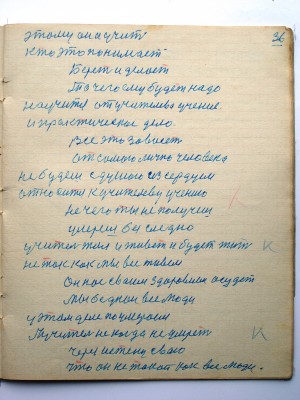 36
этому он и учит
кто это понимает
Берет и делает
То чего ему будет надо
научится от учителевы учение
и практическое дело
Все это зависет
от самого лично человека
не будет с душою и сердцем
относится к учителеву учению
не чего ты не получеш
умреш бес следно
учител жил и живет и будет жить
не так как мы все живем
Он нас своим здоровием осудет
Мы бедныи все люди
у этом деле помираем
А учител не когда не умрет
через истену свою
что он не такой как все люди.